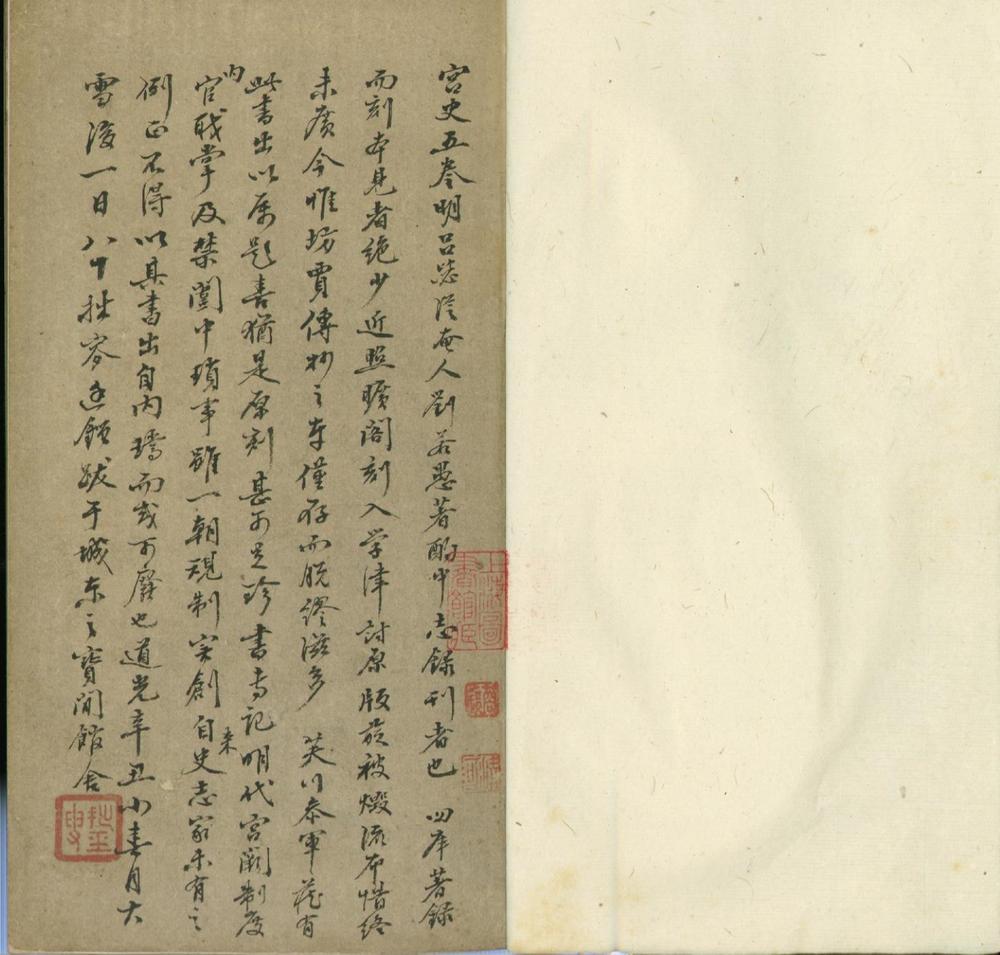 宮史五卷明呂毖從奄人劉若愚著酌中志錄刊者也　四庫著錄
而刻本見者絶少近照曠閣刻入学津討原版旋被燬流布惜終
未廣今惟坊賈傳抄之本僅存而脱繆滋多　芙川叅軍蔵有
此書出以属題喜猶是原刻甚可足珍書専記明代宮闕制度
内官職掌及禁闥中瑣事雖一朝規制实創自史志家未有之
例正不得以其書出自内璫而或可廢也道光辛丑小春月大
雪後一日八十拙叟錢跋于城东之寳閒館舍
上海圖書館臧